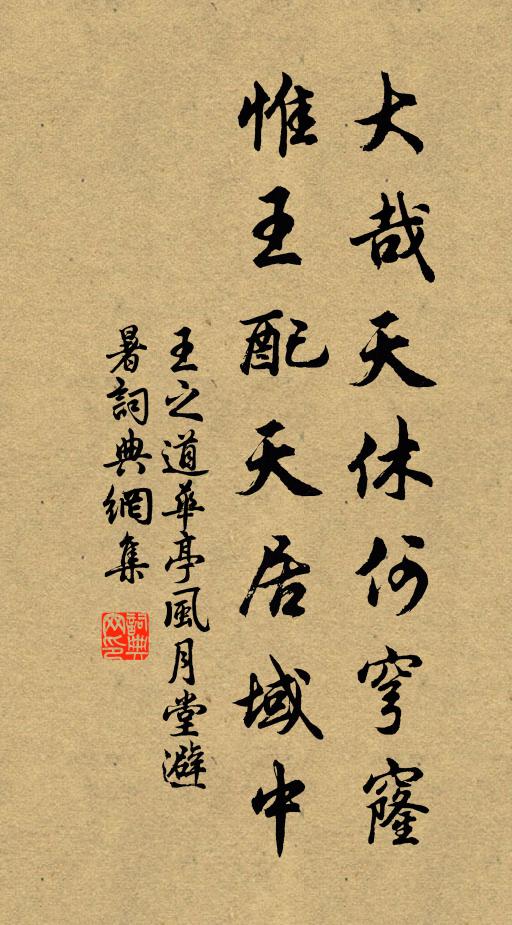 大哉天休何穹窿
惟王配天居域中
王之道華亭風月堂避
暑詞典網集
詞典網印